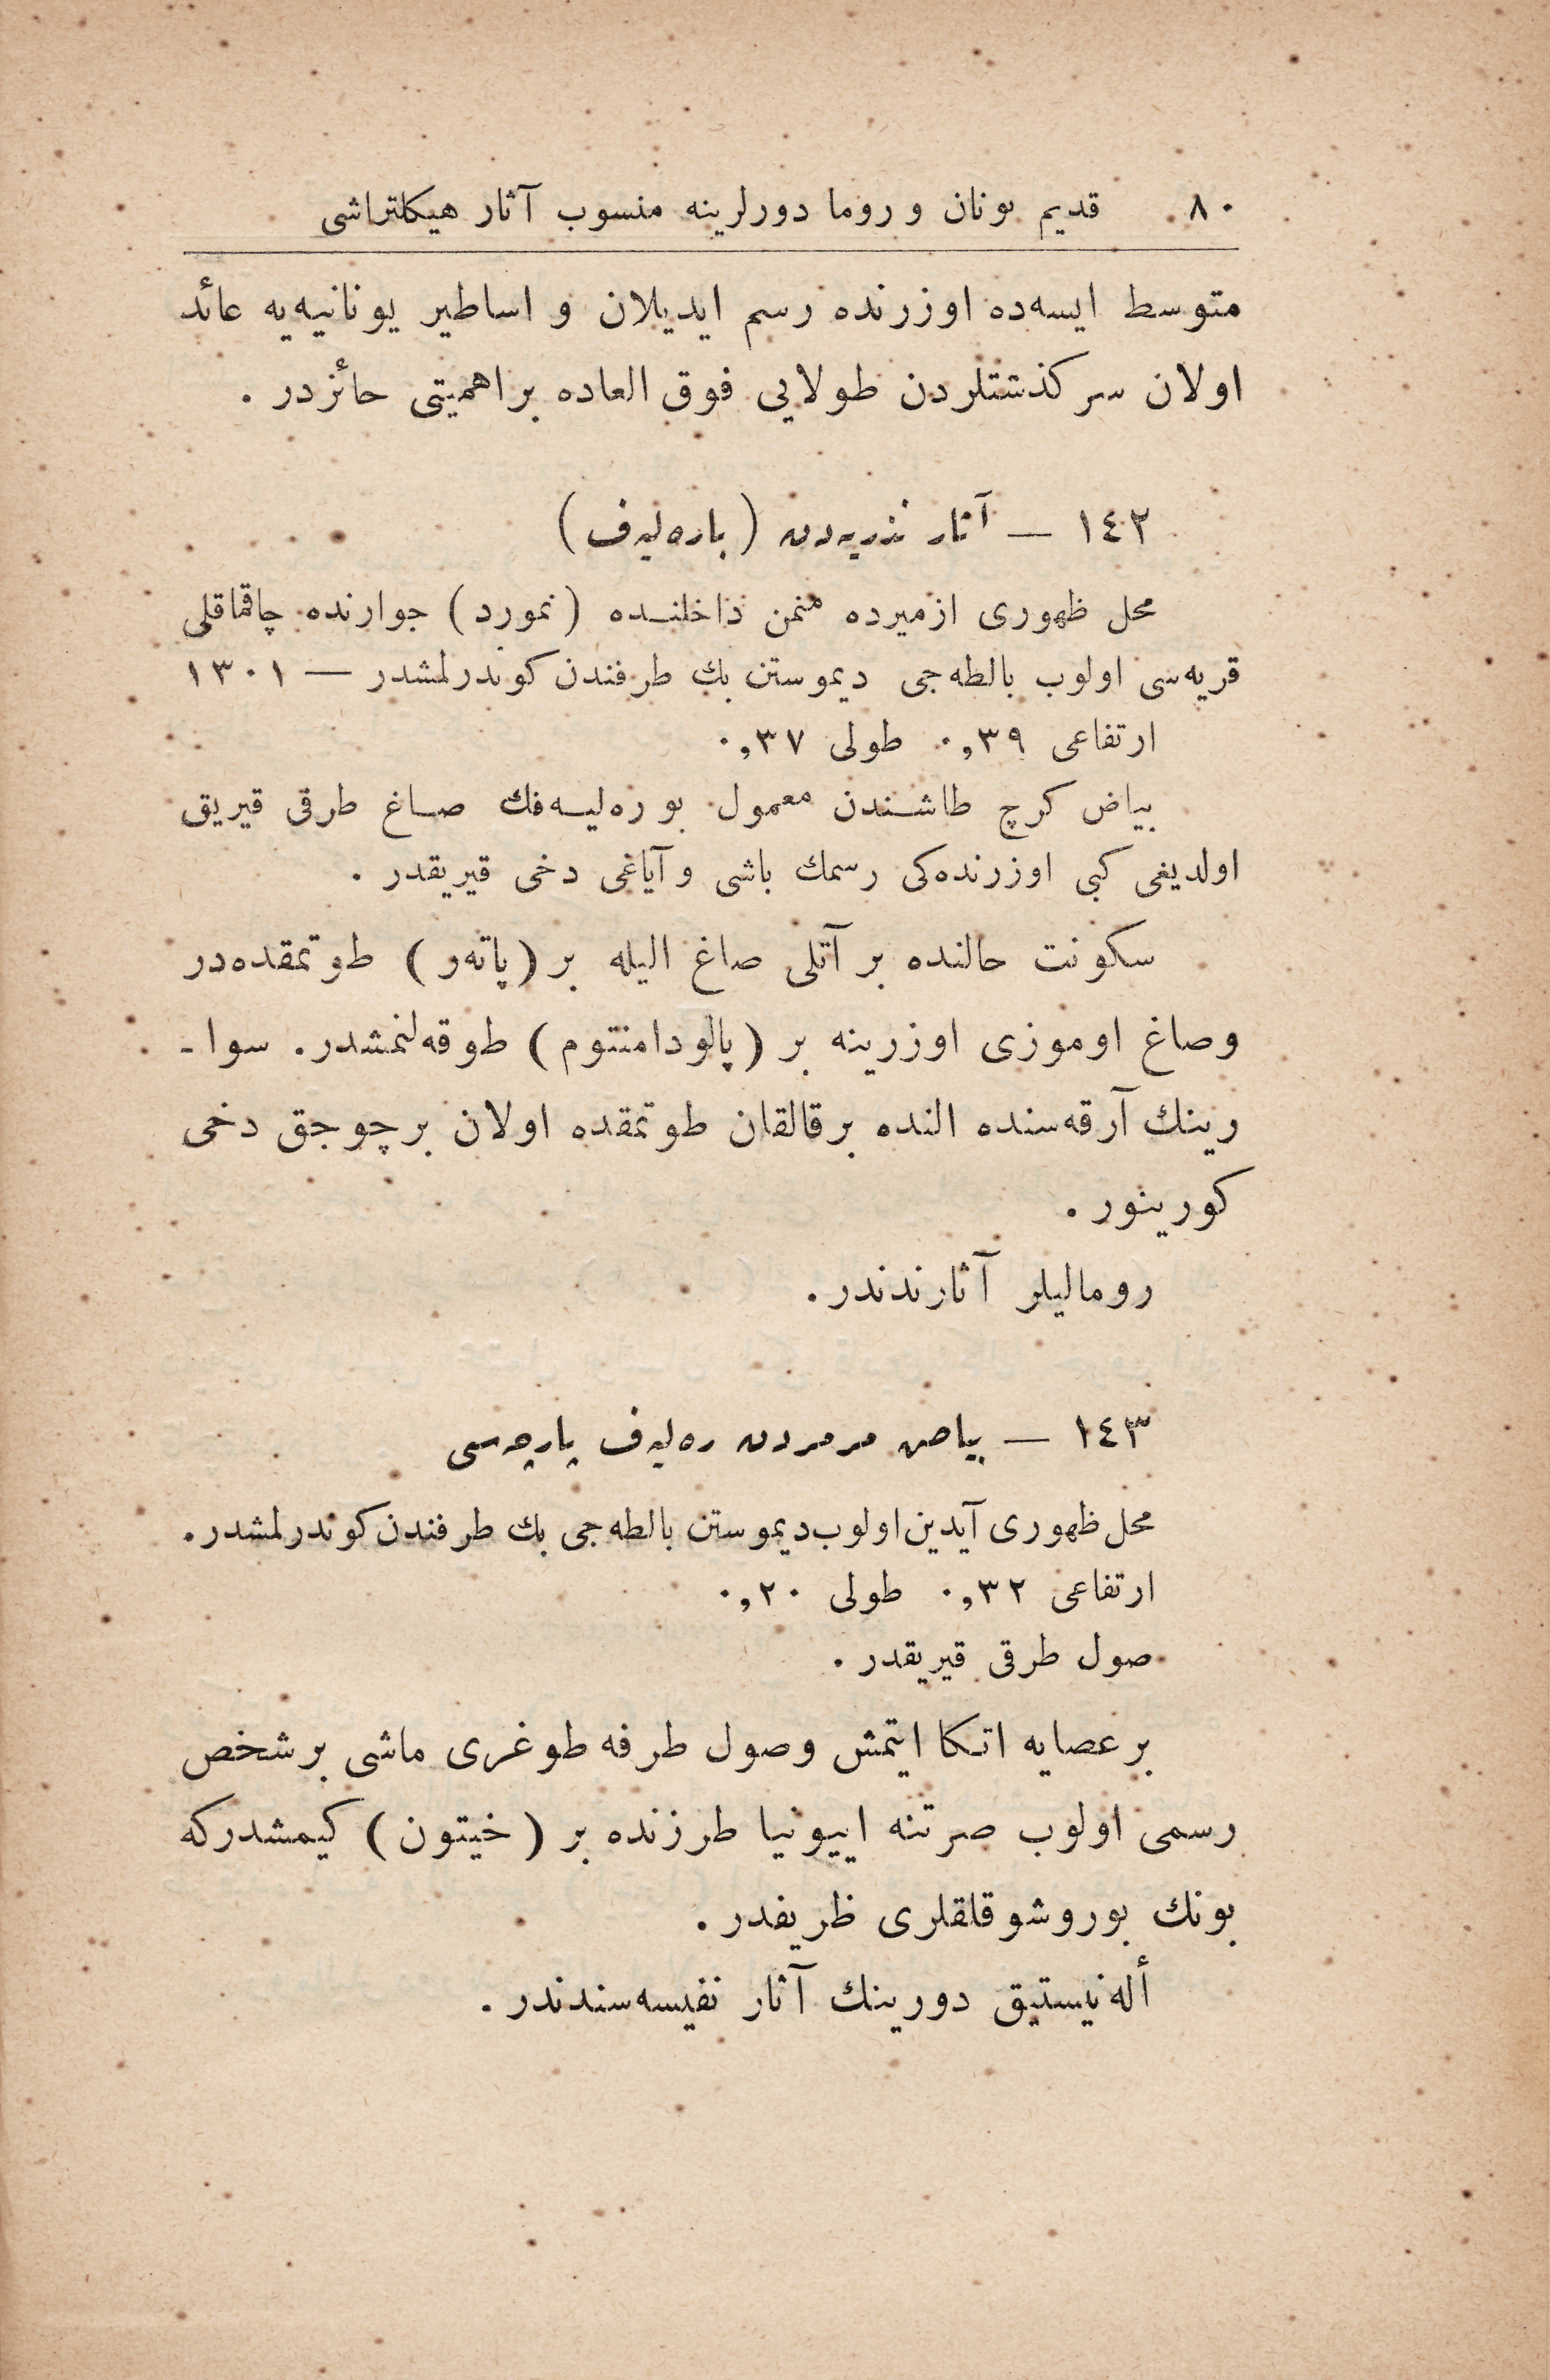 ٨٠ قديم يونان و روما دورلرينه منسوب آثار هيكلتراشى
متوسط ايسه‌ده اوزرنده رسم ايديلان و اساطير يونانيه‌يه عائد
اولان سركذشتلردن طولايى فوق العاده بر اهميتى حائزدر .
١٤٢ — آثار نذريه‌دن (باره‌ليه‌ف)
محل ظهورى ازميرده منمن داخلنـده (نمورد) جوارنده چاقماقلى
قريه‌سى اولوب بالطه‌جى ديموستن بك طرفندن كوندرلمشدر — ١٣٠١
ارتفاعى ٠,٣٩ طولى ٠,٣٧
بياض كرچ طاشـندن معمول بو ره‌ليـه‌فك صـاغ طرفى قيريق
اولديغى كبى اوزرنده‌كى رسمك باشى و آياغى دخى قيريقدر .
سكونت حالنده بر آتلى صاغ اليله بر (پاته‌ر) طوتمقده‌در
وصاغ اوموزى اوزرينه بر (پالودامنتوم) طوقه‌لنمشدر. سوا ـ
رينك آرقه‌سنده النده برقالقان طوتمقده اولان برچوجق دخى
كورينور .
روماليلر آثارندندر.
١٤٣ — بياض مرمردن ره‌ليه‌ف پارچه‌سى
محل ظهورى آيدين اولوب ديموستن بالطه‌جى بك طرفندن كوندرلمشدر.
ارتفاعى ٠,٣٢ طولى ٠,٢٠
صول طرفى قيريقدر .
برعصايه اتكا ايتمش وصول طرفه طوغرى ماشى برشخص
رسمى اولوب صرتنه اييونيا طرزنده بر (خيتون) كيمشدركه
بونك بوروشوقلقلرى ظريفدر .
أله‌نيستيق دورينك آثار نفيسه‌سندندر .